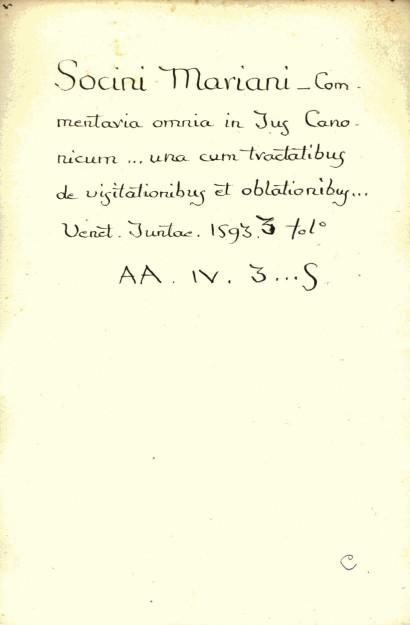 Socini Mariani – Com-
mentaria omnia in Jus Cano-
nicum ... una cum tractatibus
de visitationibus et oblationibus...
Venet. Juntae. 1593. 3 folº
AA. IV. 3...5
C